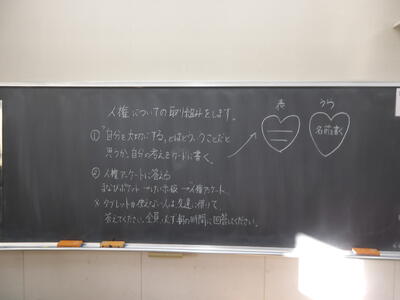 人権についての取り組みをします。
① "自分を大切にする"とはどういうことだと
思うか、自分の考えをカードに書く。
② 人権アンケートに答える
まなびポケット→けい示板→人権アンケート
※ タブレットが使えない人は友達に借りて
答えてください。全員必ず朝の時間に回答してください。
表
うら
名前を書く